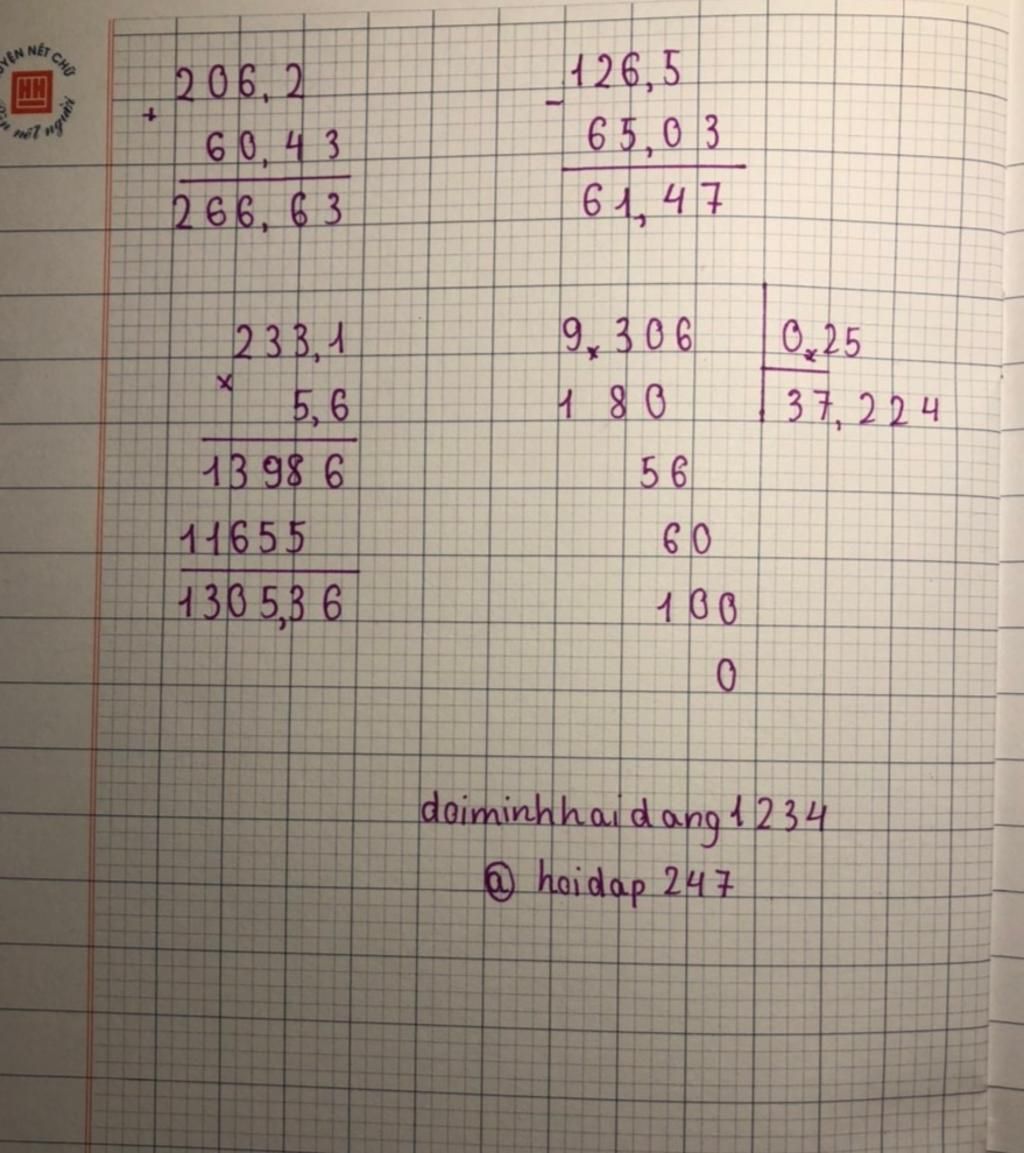 LUYỆN NÉT CHỮ
Rèn nết người
206,2
+
60,43
266,63
126,5
-
65,03
61,47
233,1
x
5,6
13986
11655
1305,36
9,306 0,25
180 37,224
56
60
100
0
doiminhhaidang1234
@ hoidap 247